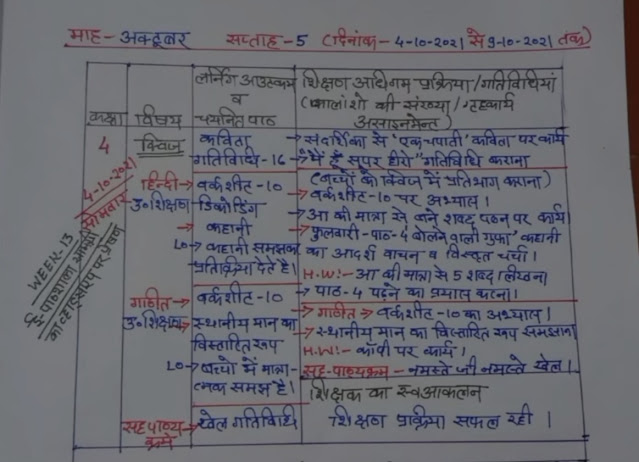 माह- अक्टूबर सप्ताह-5 (दिनांक- 4-10-2021 से 9-10-2021 तक)
कक्षा विषय लर्निंग आउटकम व चयनित पाठ शिक्षण अधिगम प्रक्रिया/गतिविधियां
(कालांशो की संख्या/गृहकार्य
असाइनमेन्ट)
4 क्विज कविता → संदर्शिका से 'एक चपाती' कविता पर कार्य
गतिविधि-16 → "मैं हूँ सुपर हीरो" गतिविधि कराना
(बच्चों को क्विज में प्रतिभाग कराना)
4-10-2021
सोमवार
WEEK-13
ई पाठशाला
हिन्दी → वर्कशीट-10 → वर्कशीट-10 पर अभ्यास।
उ०शिक्षण डिकोडिंग → आ की मात्रा से बने शब्द पठन पर कार्य।
→ कहानी → फुलवारी-पाठ-4 बोलने वाली गुफा' कहानी
LO → कहानी समझकर का आदर्श वाचन व विस्तृत चर्चा।
प्रतिक्रिया देते है। H.W:- आ की मात्रा से 5 शब्द लिखना
→ पाठ-4 पढ़ने का प्रयास करना।
गणित → वर्कशीट-10 गणित → वर्कशीट-10 का अभ्यास।
उ०शिक्षण → स्थानीय मान का → स्थानीय मान का विस्तारित रूप समझाना
विस्तारित रूप H.W:- कॉपी पर कार्य।
LO → बच्चो में मात्रा- सह-पाठ्यक्रम - नमस्ते जी नमस्ते खेल।
त्मक समझ है। शिक्षक का स्वआकलन
सह पाठ्य → खेल गतिविधि शिक्षण प्रक्रिया सफल रही।
क्रम